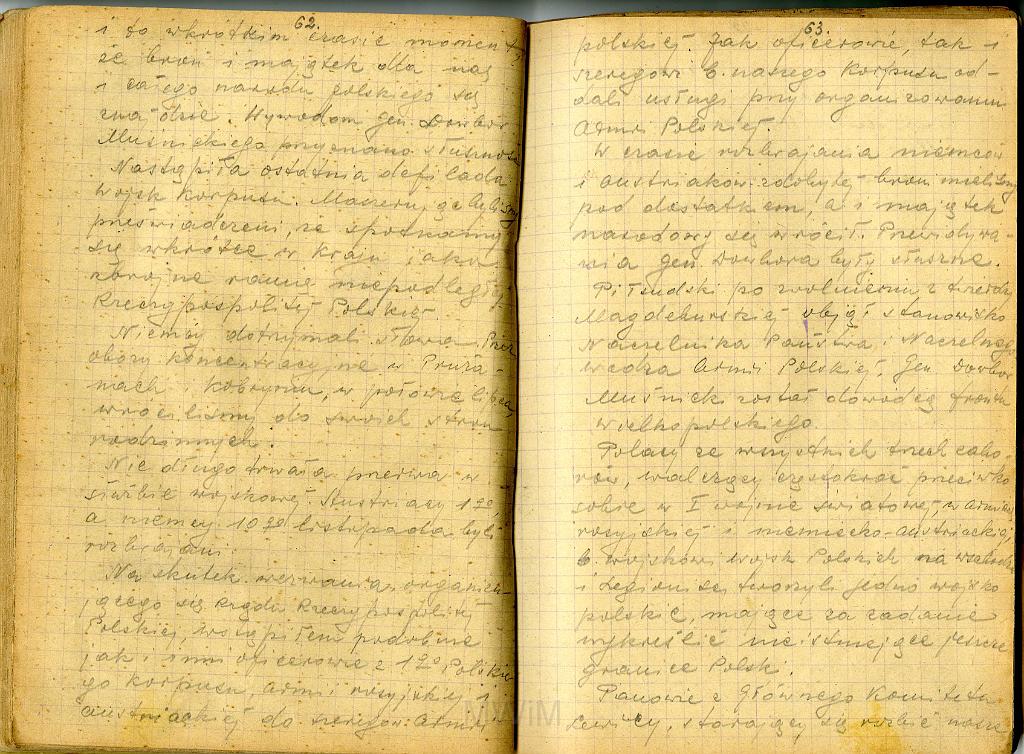 62.
i to wkrótkim czasie moment,
że broń i majątek dla nas
i całego narodu polskiego są
zna dzie. Wywodom gen. Dowbor
Muśnickiego przyznano słuszność
Nastąpiła ostatnia defilada
wojsk Korpusu. Maszerując byliśmy
przeświadczeni, że spotkamy
się wkrótce w kraju jako
zbrojne ramię niepodległej
Rzeczypospolitej Polskiej.
Niemcy dotrzymali słowa. Przez
obozy koncentracyjne w Pruża-
nach i Kobryniu, w połowie lipca,
wróciliśmy do swoich stron
rodzinnych.
Nie długo trwała przerwa w
służbie wojskowej. Austriacy 1go
a niemcy 10go listopada byli
rozbrajani.
Na skutek wezwania, organizu-
jącego się Rządu Rzeczypospolitej
Polskiej, wstąpiłem podobnie
jak i inni oficerowie z 1go Polskie-
go Korpusu, armi rosyjskiej i
austriackiej do szeregów Armi
63.
polskiej. Jak oficerowie, tak i
szeregowi b. naszego Korpusu od-
dali usługi przy organizowaniu
Armi Polskiej.
W czasie rozbrajania niemców
i austriaków zdobytej broni mieliśmy
pod dostatkiem, a i majątek
narodowy się wrócił. Przewidywa-
nia gen. Dowbora były słuszne.
Piłsudski po zwolnieniu z twierdzy
Magdeburskiej objął stanowisko
Naczelnika Państwa i Naczelnego
wodza Armii Polskiej. Gen. Dowbor
Muśnicki został dowódcą frontu
Wielkopolskiego.
Polacy ze wszystkich trzech zabo-
rów, walczący częstokroć przeciwko
sobie w I wojnie światowej, w armiach
rosyjskiej i niemiecko-austriackiej,
b. wojskowi wojsk Polskich na wschodzie
i Legioniści tworzyli jedno wojsko
polskie, mające za zadanie
wykreślić nieistniejące jeszcze
granice Polski.
Panowie z Głównego Komitetu
Lewicy, starający się rozbić nasze
MYVIM